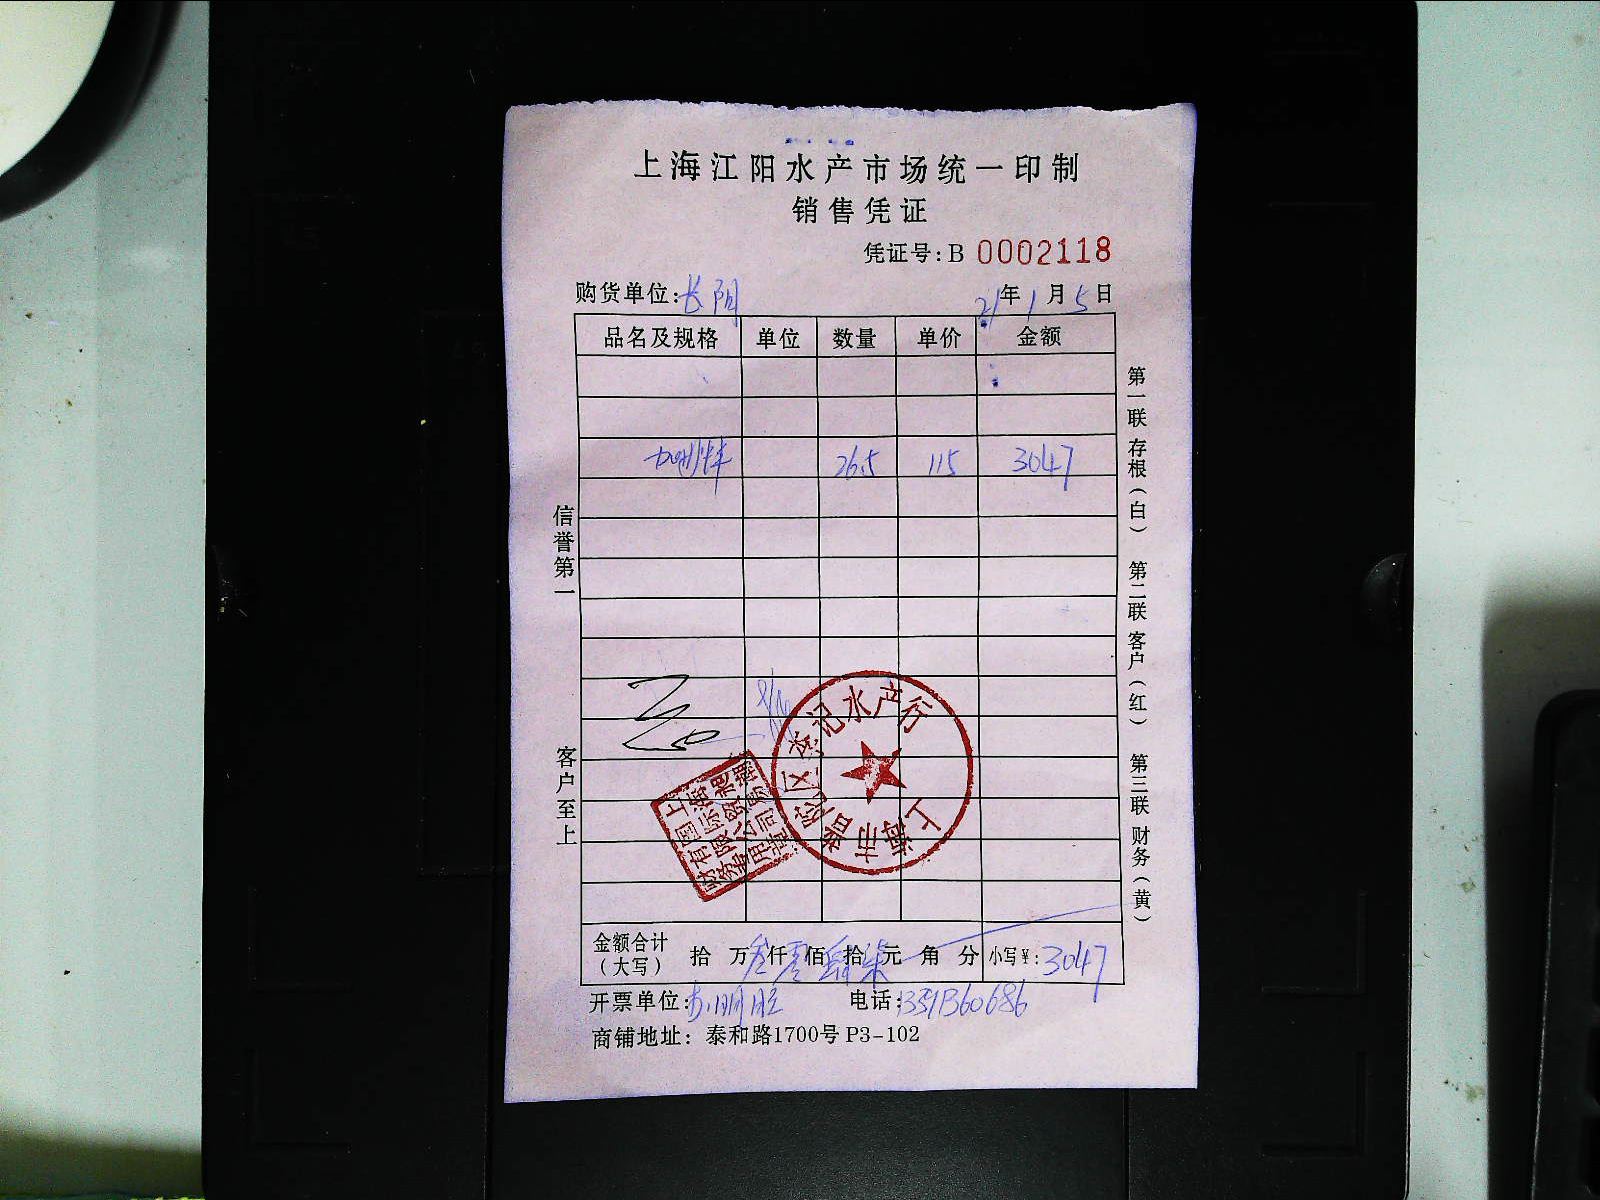 上海江阳水产市场统一印制
销售凭证
凭证号:B 0002118
购货单位:长阳 21年1月5日
品名及规格 单位 数量 单价 金额
26.5 115 3047
信誉第一
客户至上
第一联 存根(白) 第二联 客户(红) 第三联 财务(黄)
上海市普陀区 记水产行
上海
国际贸易
有限公司
财务专用章
金额合计(大写) 拾 万叁仟零佰肆拾柒元 角 分 小写¥:3047
开票单位: 电话:13591360686
商铺地址: 泰和路1700号 P3-102